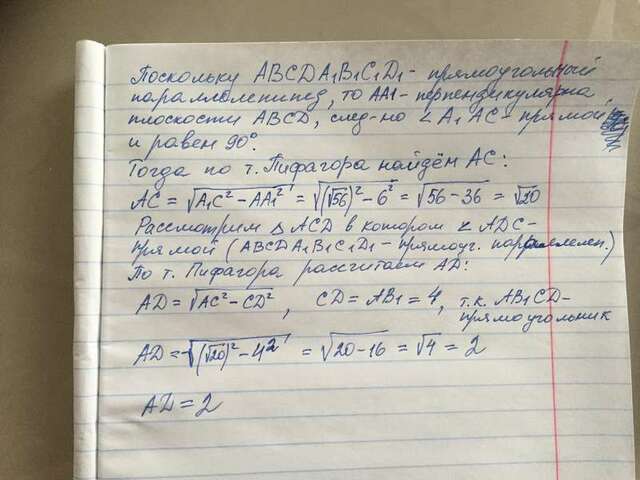 Поскольку ABCDA1B1C1D1 - прямоугольный
параллелепипед, то AA1 - перпендикулярна
плоскости ABCD, след-но ∠A1AC - прямой
и равен 90°.
Тогда по т. Пифагора найдём AC:
AC = √A1C² - AA1² = √(√56)² - 6² = √56 - 36 = √20
Рассмотрим Δ ACD в котором ∠ ADC -
прямой (ABCDA1B1C1D1 - прямоуг. параллелеп.)
По т. Пифагора рассчитаем AD:
AD = √AC² - CD² , CD = AB1 = 4, т.к. AB1CD -
прямоугольник
AD = √(√20)² - 4² = √20 - 16 = √4 = 2
AD = 2